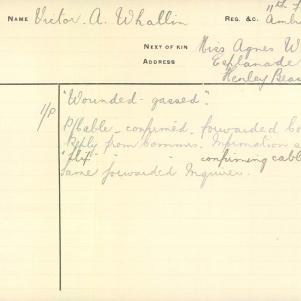 NAME Victor. A. Whallin REG. &C. 11th F
Amb
NEXT OF KIN Miss Agnes W
ADDRESS Esplanade
Henley Bea
"Wounded - gassed".
1/P P/Cable - confirmed. forwarded Co
Reply from Commrs. Information a
" " confirming cabl
Same forwarded Inquirer.